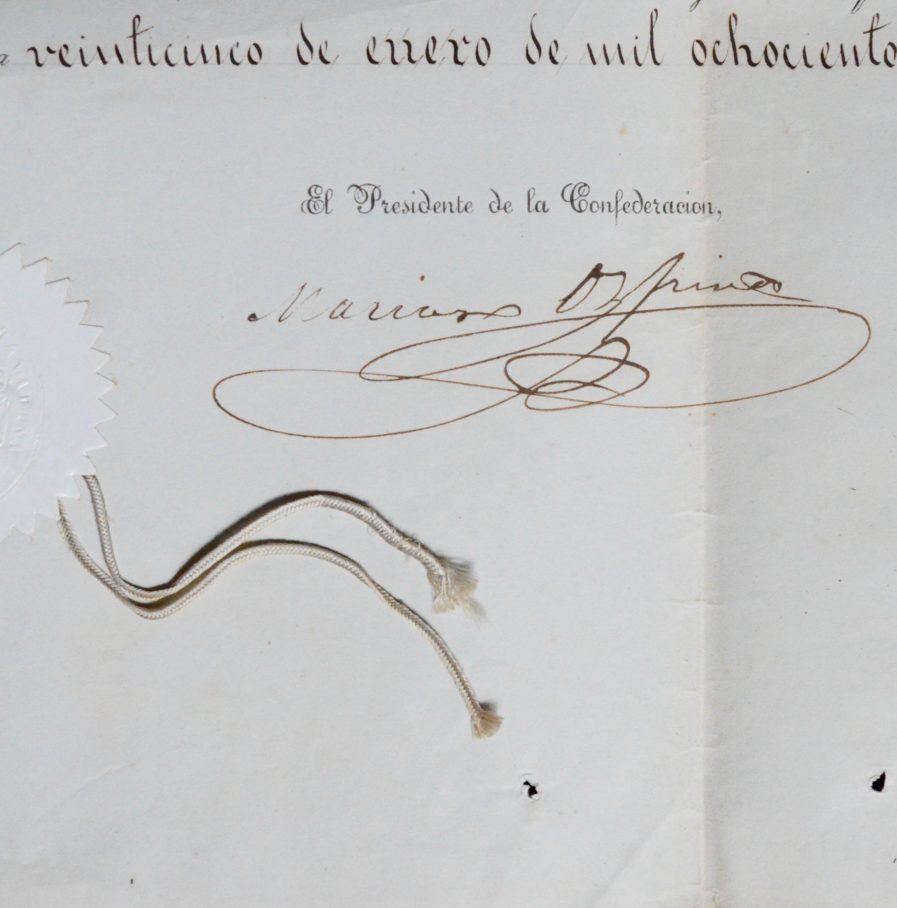 veinticinco de enero de mil ochociento
El Presidente de la Confederacion,
Mariano Ospina